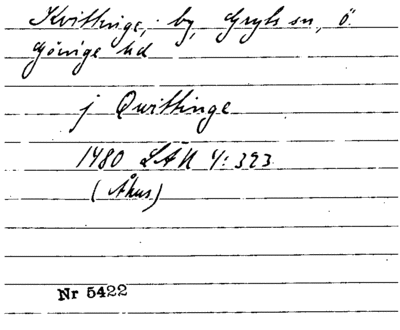 Kvittinge, by, Gryts sn, Ö.
Göinge hd
j Qwittinge
1480 LÄU 4: 393
(Åhus)
Nr 5422